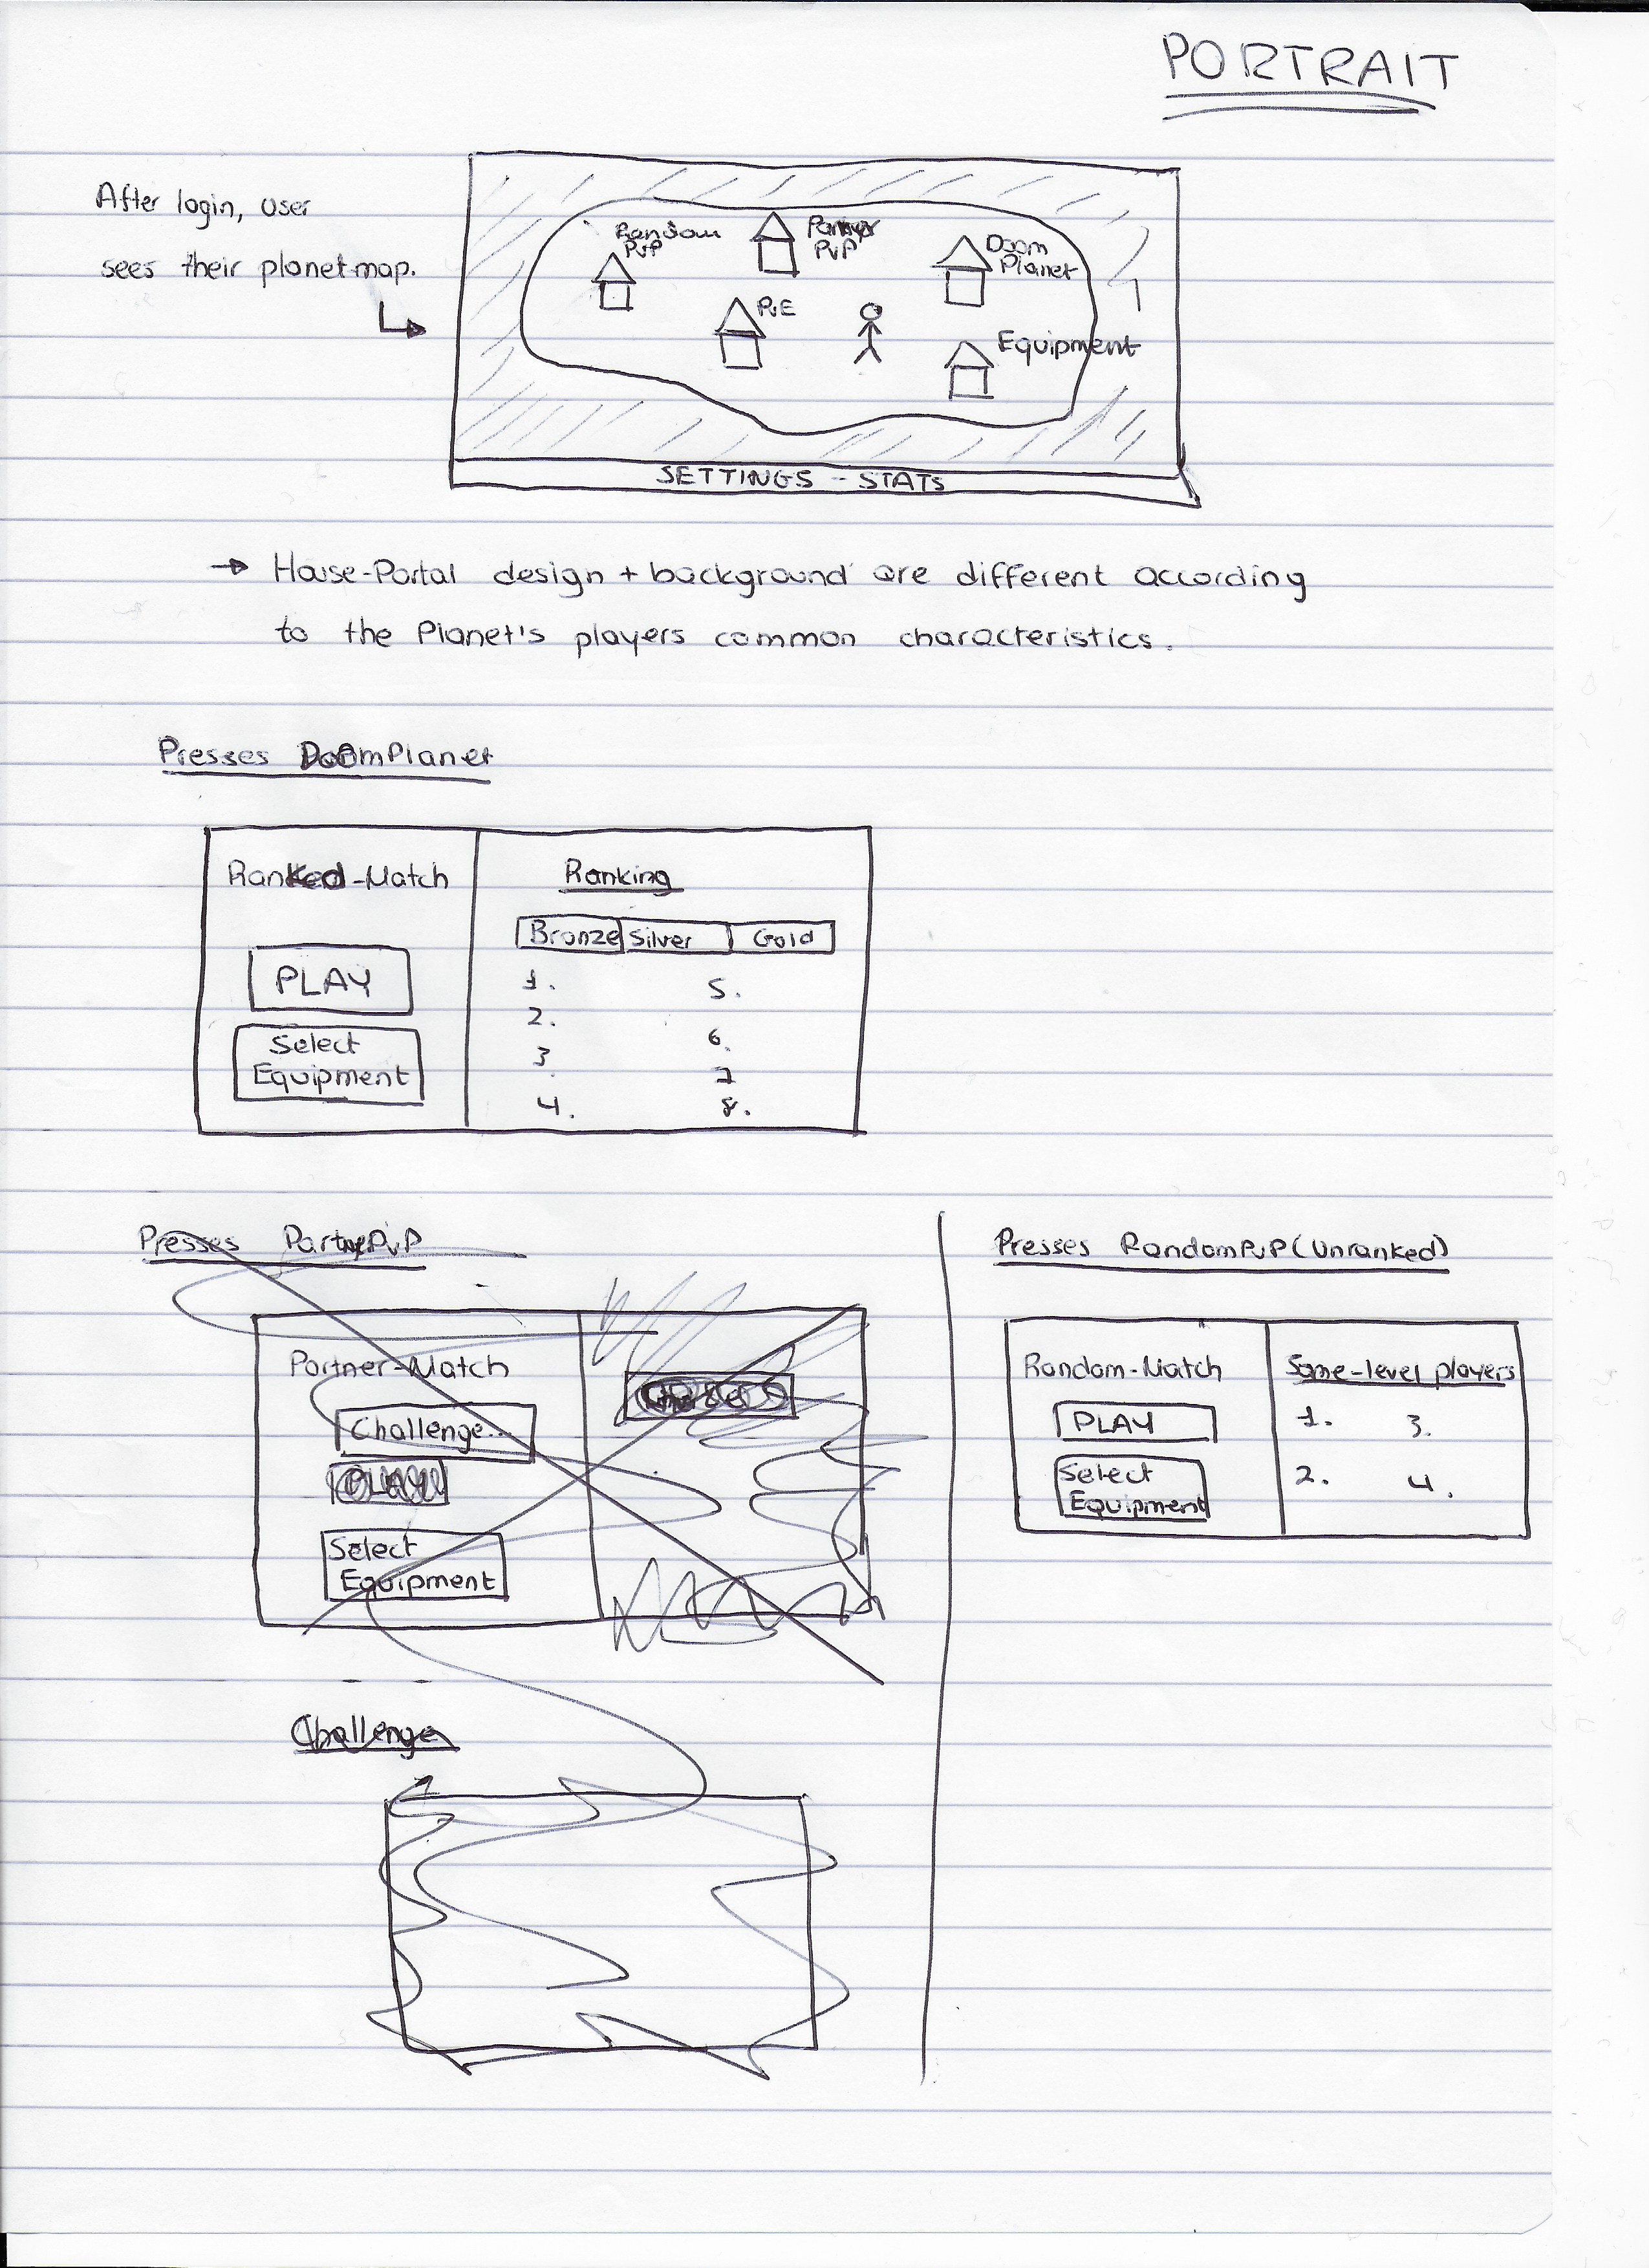 PORTRAIT
After login, user
sees their planet-map.
Random
PvP
Partner
PvP
Doom
Planet
PvE
Equipment
SETTINGS - STATS
→ House-Portal design + background are different according
to the Planet's players common characteristics.
Presses DoomPlanet
Ranked-Match
PLAY
Select
Equipment
Ranking
Bronze Silver Gold
1. 5.
2. 6.
3. 7
4. 8.
Presses PartnerPvP
Partner-Match
Challenge..
PLAY
Select
Equipment
Challenge
Presses RandomPvP (Unranked)
Random-Match
PLAY
Select
Equipment
Same-level players
1. 3.
2. 4.